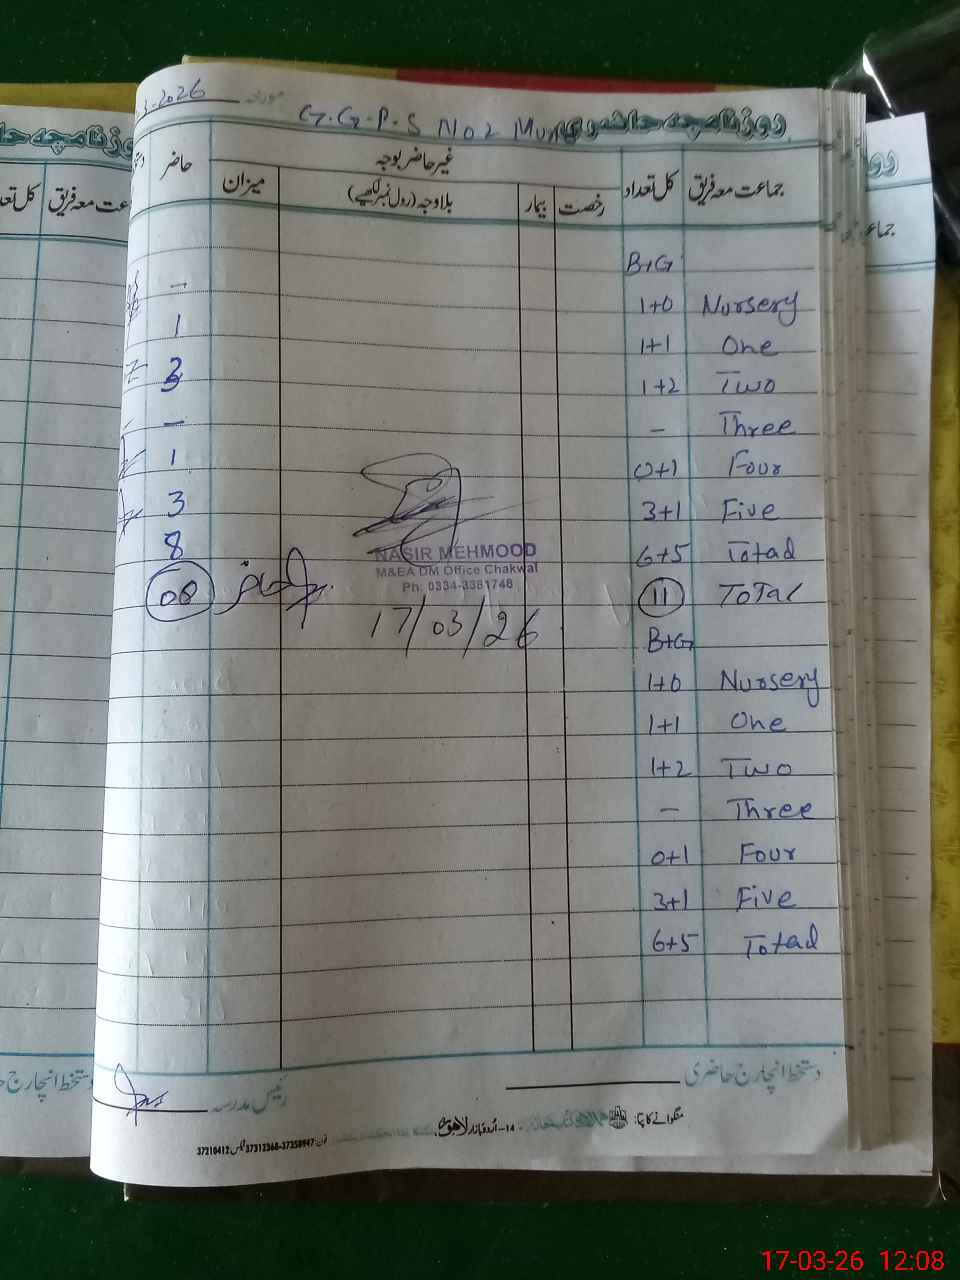 3-2026 مورخہ
G.G.P.S No 2
روزنامچہ حاضری
جماعت معہ فریق کل تعداد غیر حاضر بوجہ حاضر
رخصت بیمار بلاوجہ (رول نمبر لکھیے) میزان
B+G
Nursery 1+0 -
One 1+1 1
Two 1+2 3
Three - -
Four 0+1 1
Five 3+1 3
Total 6+5 8
Total 11 08 حاضر
NASIR MEHMOOD
M&EA DM Office Chakwal
Ph: 0334-3381748
17/03/26
B+G
Nursery 1+0
One 1+1
Two 1+2
Three -
Four 0+1
Five 3+1
Total 6+5
دستخط انچارج حاضری
رئیس مدرسہ
منگوانے کا پتا:
14-اردو بازار لاہور
فون: 37358947-37312368 فیکس 37210412
17-03-26 12:08